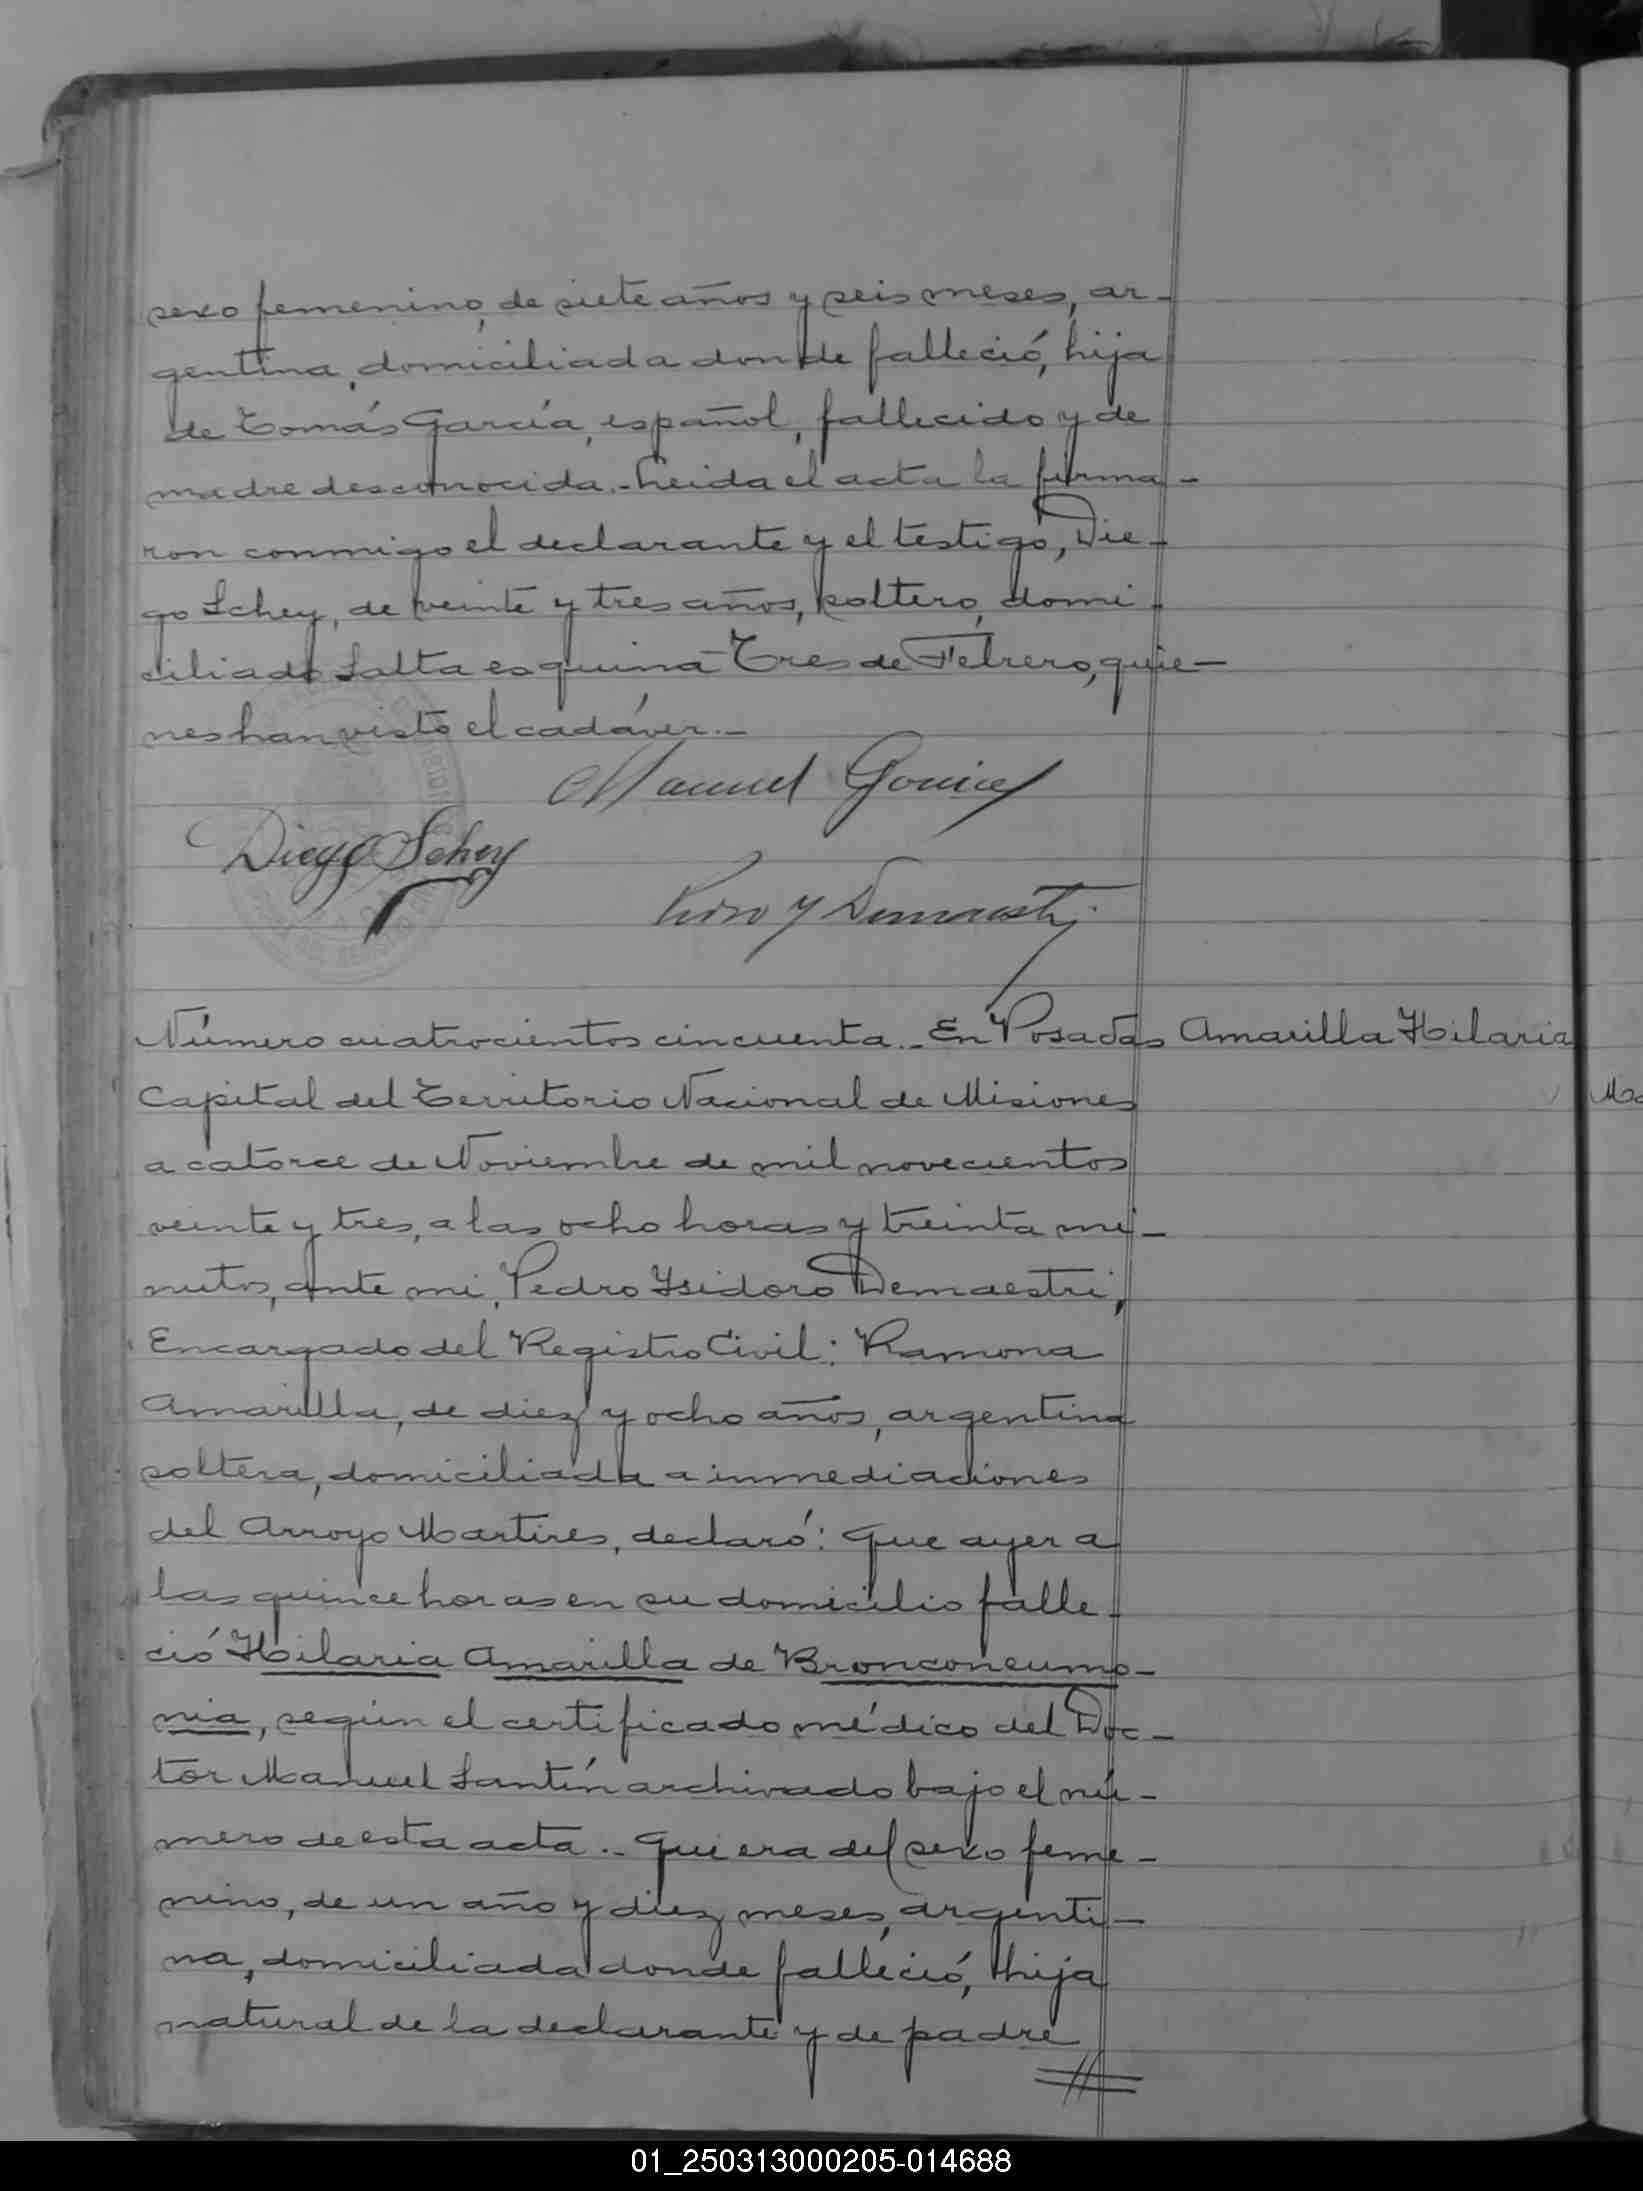 sexo femenino, de siete años y seis meses, ar-
gentina, domiciliada donde falleció, hija
de Tomás García, español, fallecido y de
madre desconocida.- Leida el acta la firma-
ron conmigo el declarante y el testigo, Die-
go Schey, de veinte y tres años, soltero, domi-
ciliado Salta esquina Tres de Febrero, quie-
nes han visto el cadáver.-
Manuel
Diego Schey
Pedro Y Demaestri
Número cuatrocientos cincuenta.- En Posadas Amarilla Hilaria
Capital del Territorio Nacional de Misiones
a catorce de Noviembre de mil novecientos
veinte y tres, a las ocho horas y treinta mi-
nutos, ante mi, Pedro Ysidoro Demaestri,
Encargado del Registro Civil: Ramona
Amarilla, de diez y ocho años, argentina
soltera, domiciliada a inmediaciones
del Arroyo Martires, declaró: Que ayer a
las quince horas en su domicilio falle-
ció Hilaria Amarilla de Bronconeumo-
nia, según el certificado médico del Doc-
tor Manuel Santín archivado bajo el nú-
mero de esta acta.- Que era del sexo feme-
nino, de un año y diez meses, argenti-
na, domiciliada donde falleció, hija
natural de la declarante y de padre
01_250313000205-014688